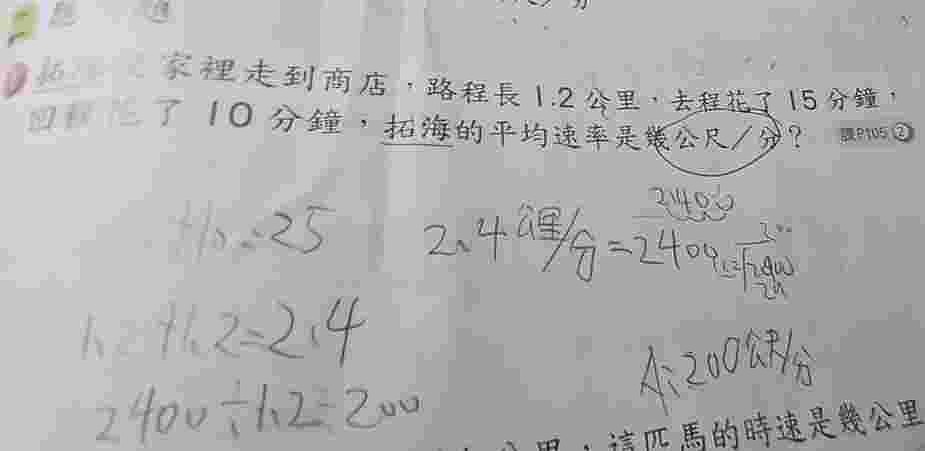 題
拓海從家裡走到商店,路程長 1.2 公里,去程花了 15 分鐘,
回程花了 10 分鐘,拓海的平均速率是幾公尺/分? 課P105②
=25
2.4 公里/分=2400
1.2+1.2=2.4
2400÷1.2=200
A:200公尺/分
公里,這匹馬的時速是幾公里